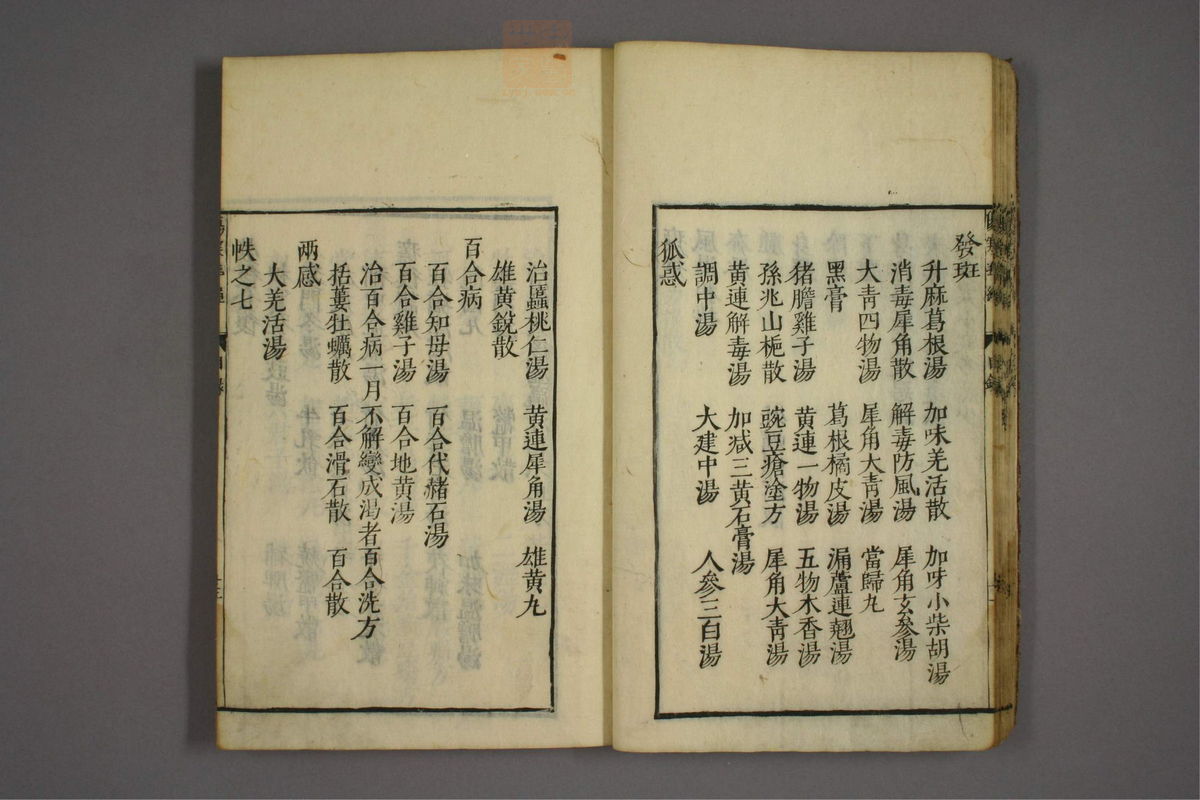 發斑
升麻葛根湯 加味羌活散 加味小柴胡湯
消毒犀角散 解毒防風湯 犀角玄參湯
大靑四物湯 犀角大靑湯 當歸丸
黑膏 葛根橘皮湯 漏蘆連翹湯
猪膽雞子湯 黃連一物湯 五物木香湯
孫兆山梔散 豌豆瘡塗方 犀角大靑湯
黃連解毒湯 加减三黃石膏湯
調中湯 大建中湯 人參三白湯
狐惑
治䘌桃仁湯 黃連犀角湯 雄黃丸
雄黃銳散
百合病
百合知母湯 百合代赭石湯
百合雞子湯 百合地黃湯
治百合病一月不解變成渴者百合洗方
括蔞牡蠣散 百合滑石散 百合散
两感
大羌活湯
帙之七